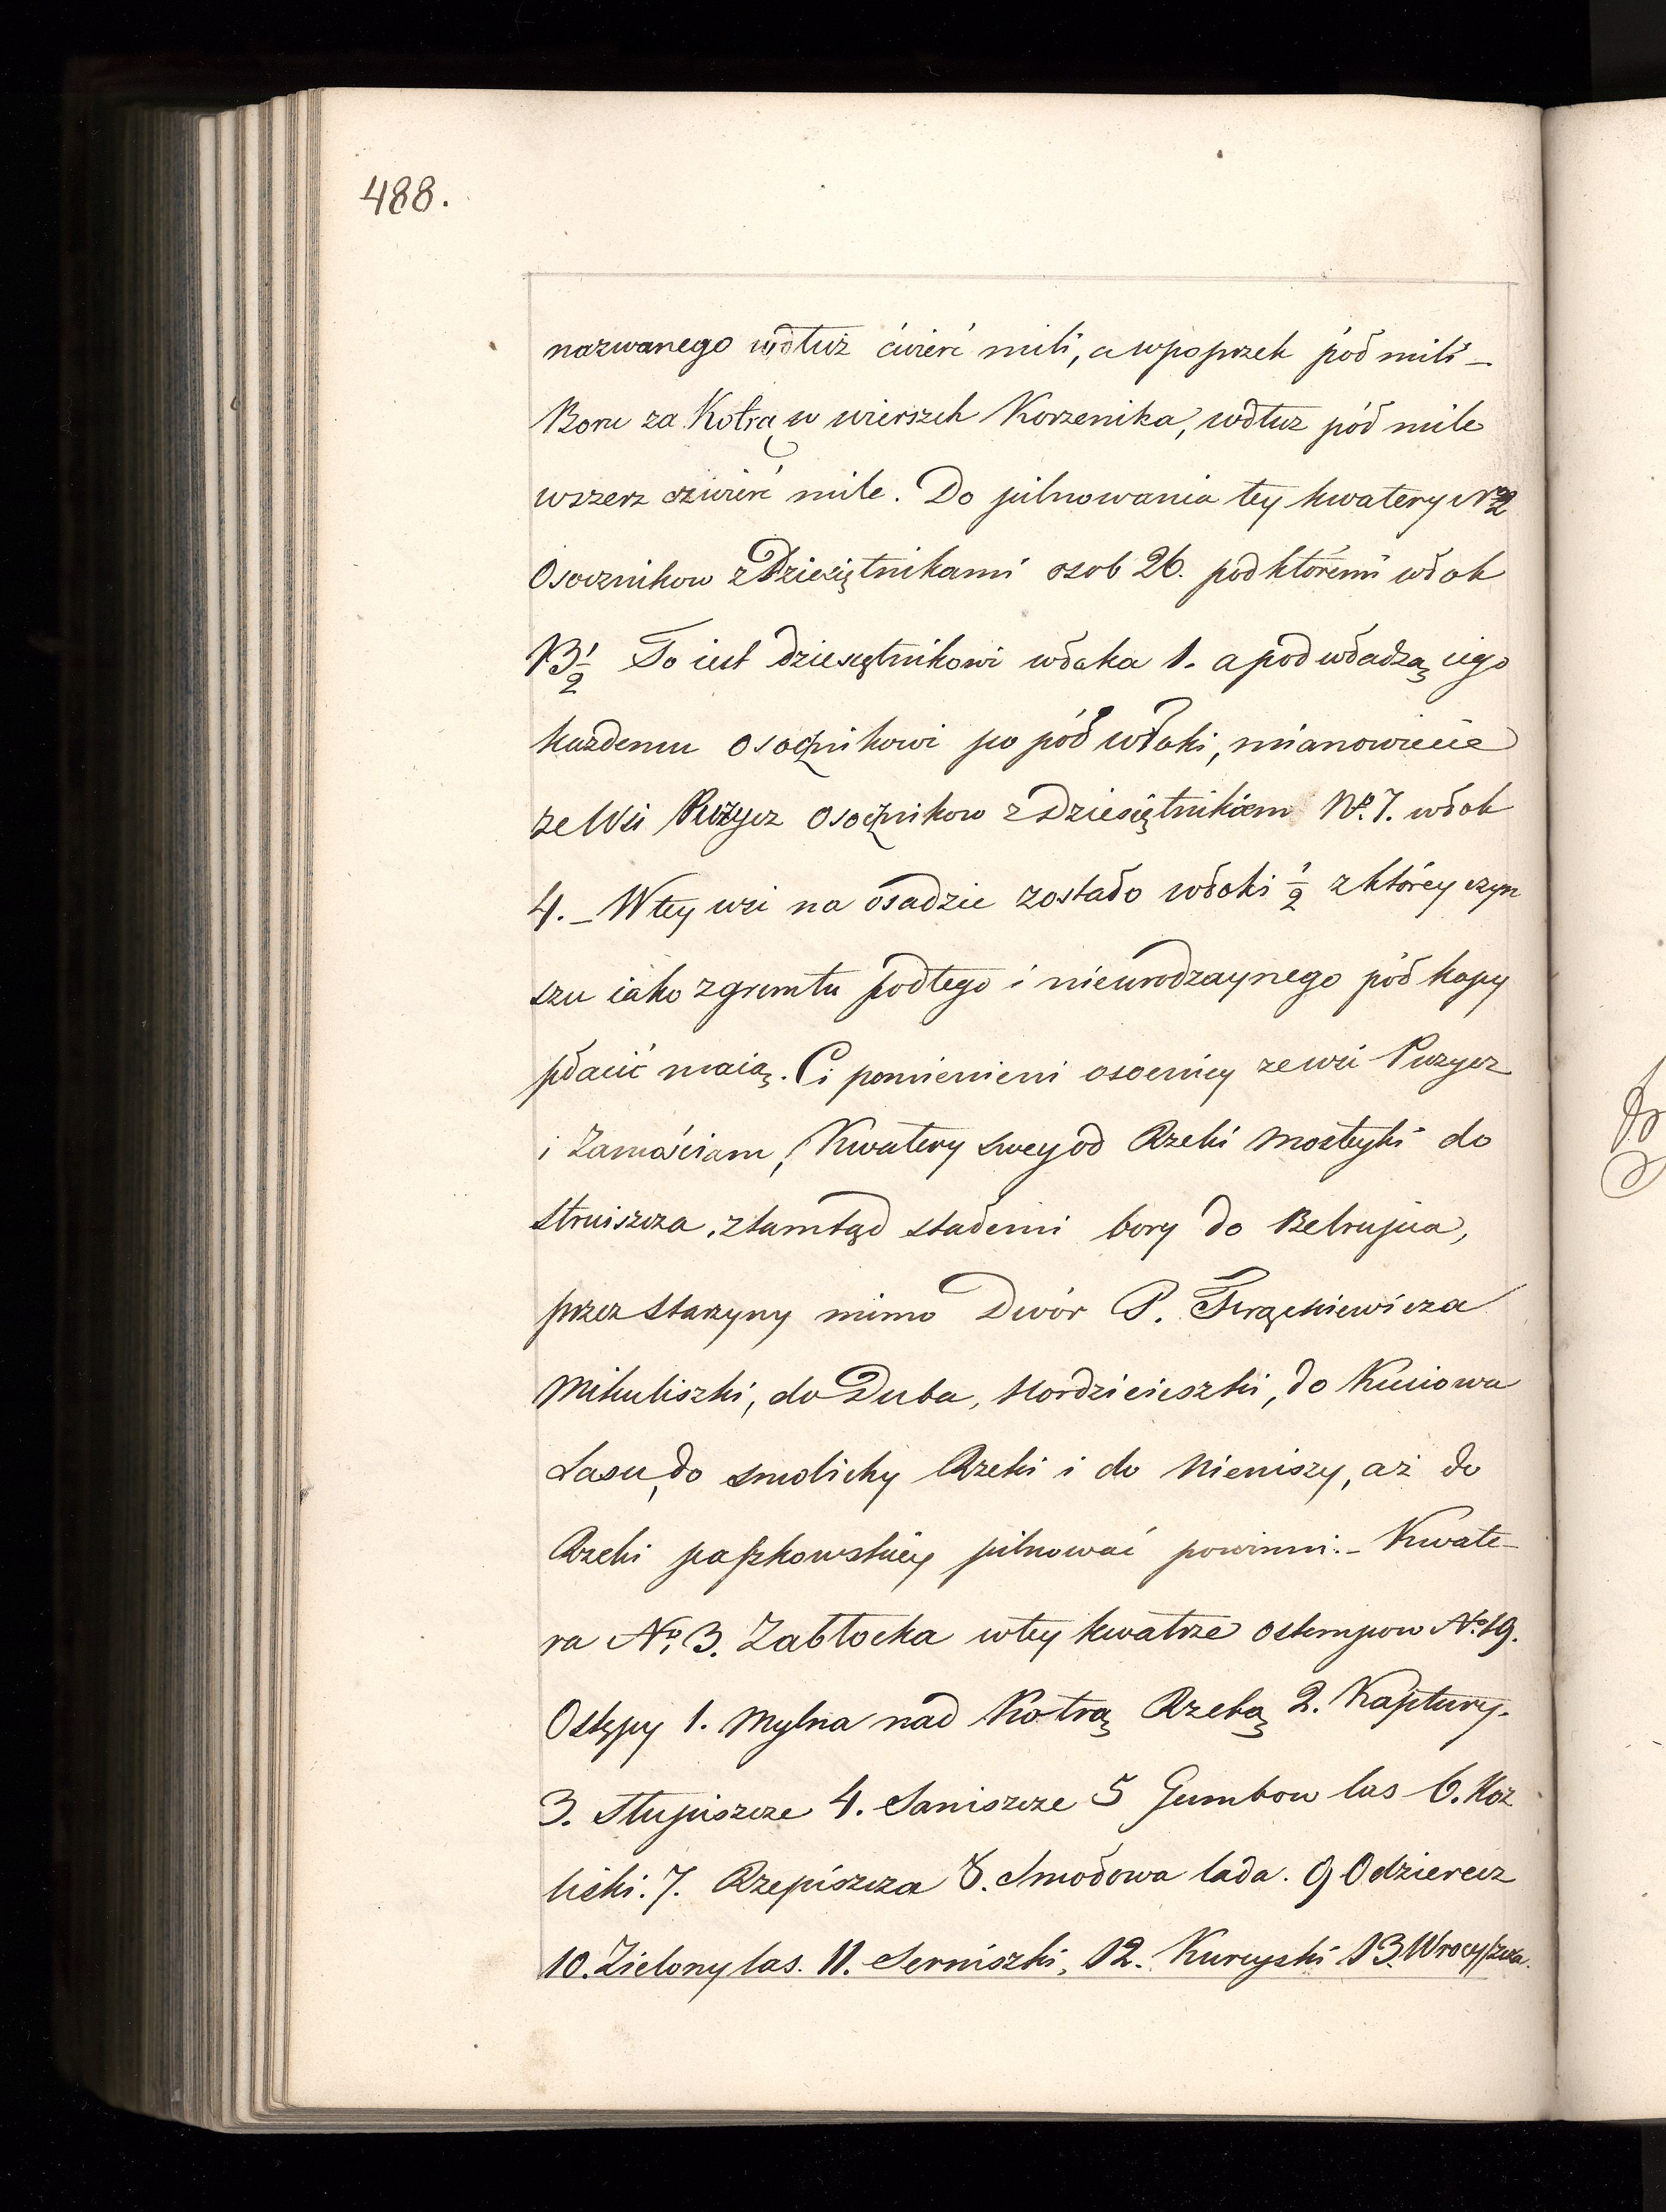 488.
nazwanego wdłuż ćwierć mili, a wpoprzek pół mili _
Boru za Kotrą w wierszch Korzenika, wdłuz pół mile
wszerz czwierć mile. Do pilnowania tey kwatery No 2
Osocznikow z Dziesiętnikami osob 26. pod któremi włok
13½ To iest dziesiętnikowi włoka 1. a pod władzą iego
każdemu osocznikowi po pół włoki, mianowicie
ze Wsi Puzycz osocznikow z Dziesiętnikiem No. 7. włok
4. _ W tey wsi na osadzie zostało włoki ½ z którey czyn
szu iako z gruntu podłego i nieurodzaynego pół kopy
płacić maią. Ci pomienieni osocnicy ze wsi Puzycz
i Zamościam, Kwatery swey od Rzeki Mosteyki do
Struiszcza, ztamtąd stademi bory do
przez Starzyny mimo Dwór P.
Mikuliszki, do Duba, do Kuiowa
Lasu, do Smolichy Rzeki i do Nieniszy, aż do
Rzeki paszkowskiey pilnować powinni. _ Kwate-
ra No. 3. Zabłocka w tey kwatrze ostempow No. 19.
Ostępy 1. Mylna nad Kotrą Rzeką 2. Kaptury.
3. Stupiszcze 4. Saniszcze 5 Gumbow las 6. Koz
liski. 7. Rzepiszcza 8. Smołowa lada. 9 Odziercz
10. Zielony las. 11. Serniszki, 12. Kurcyski 13.